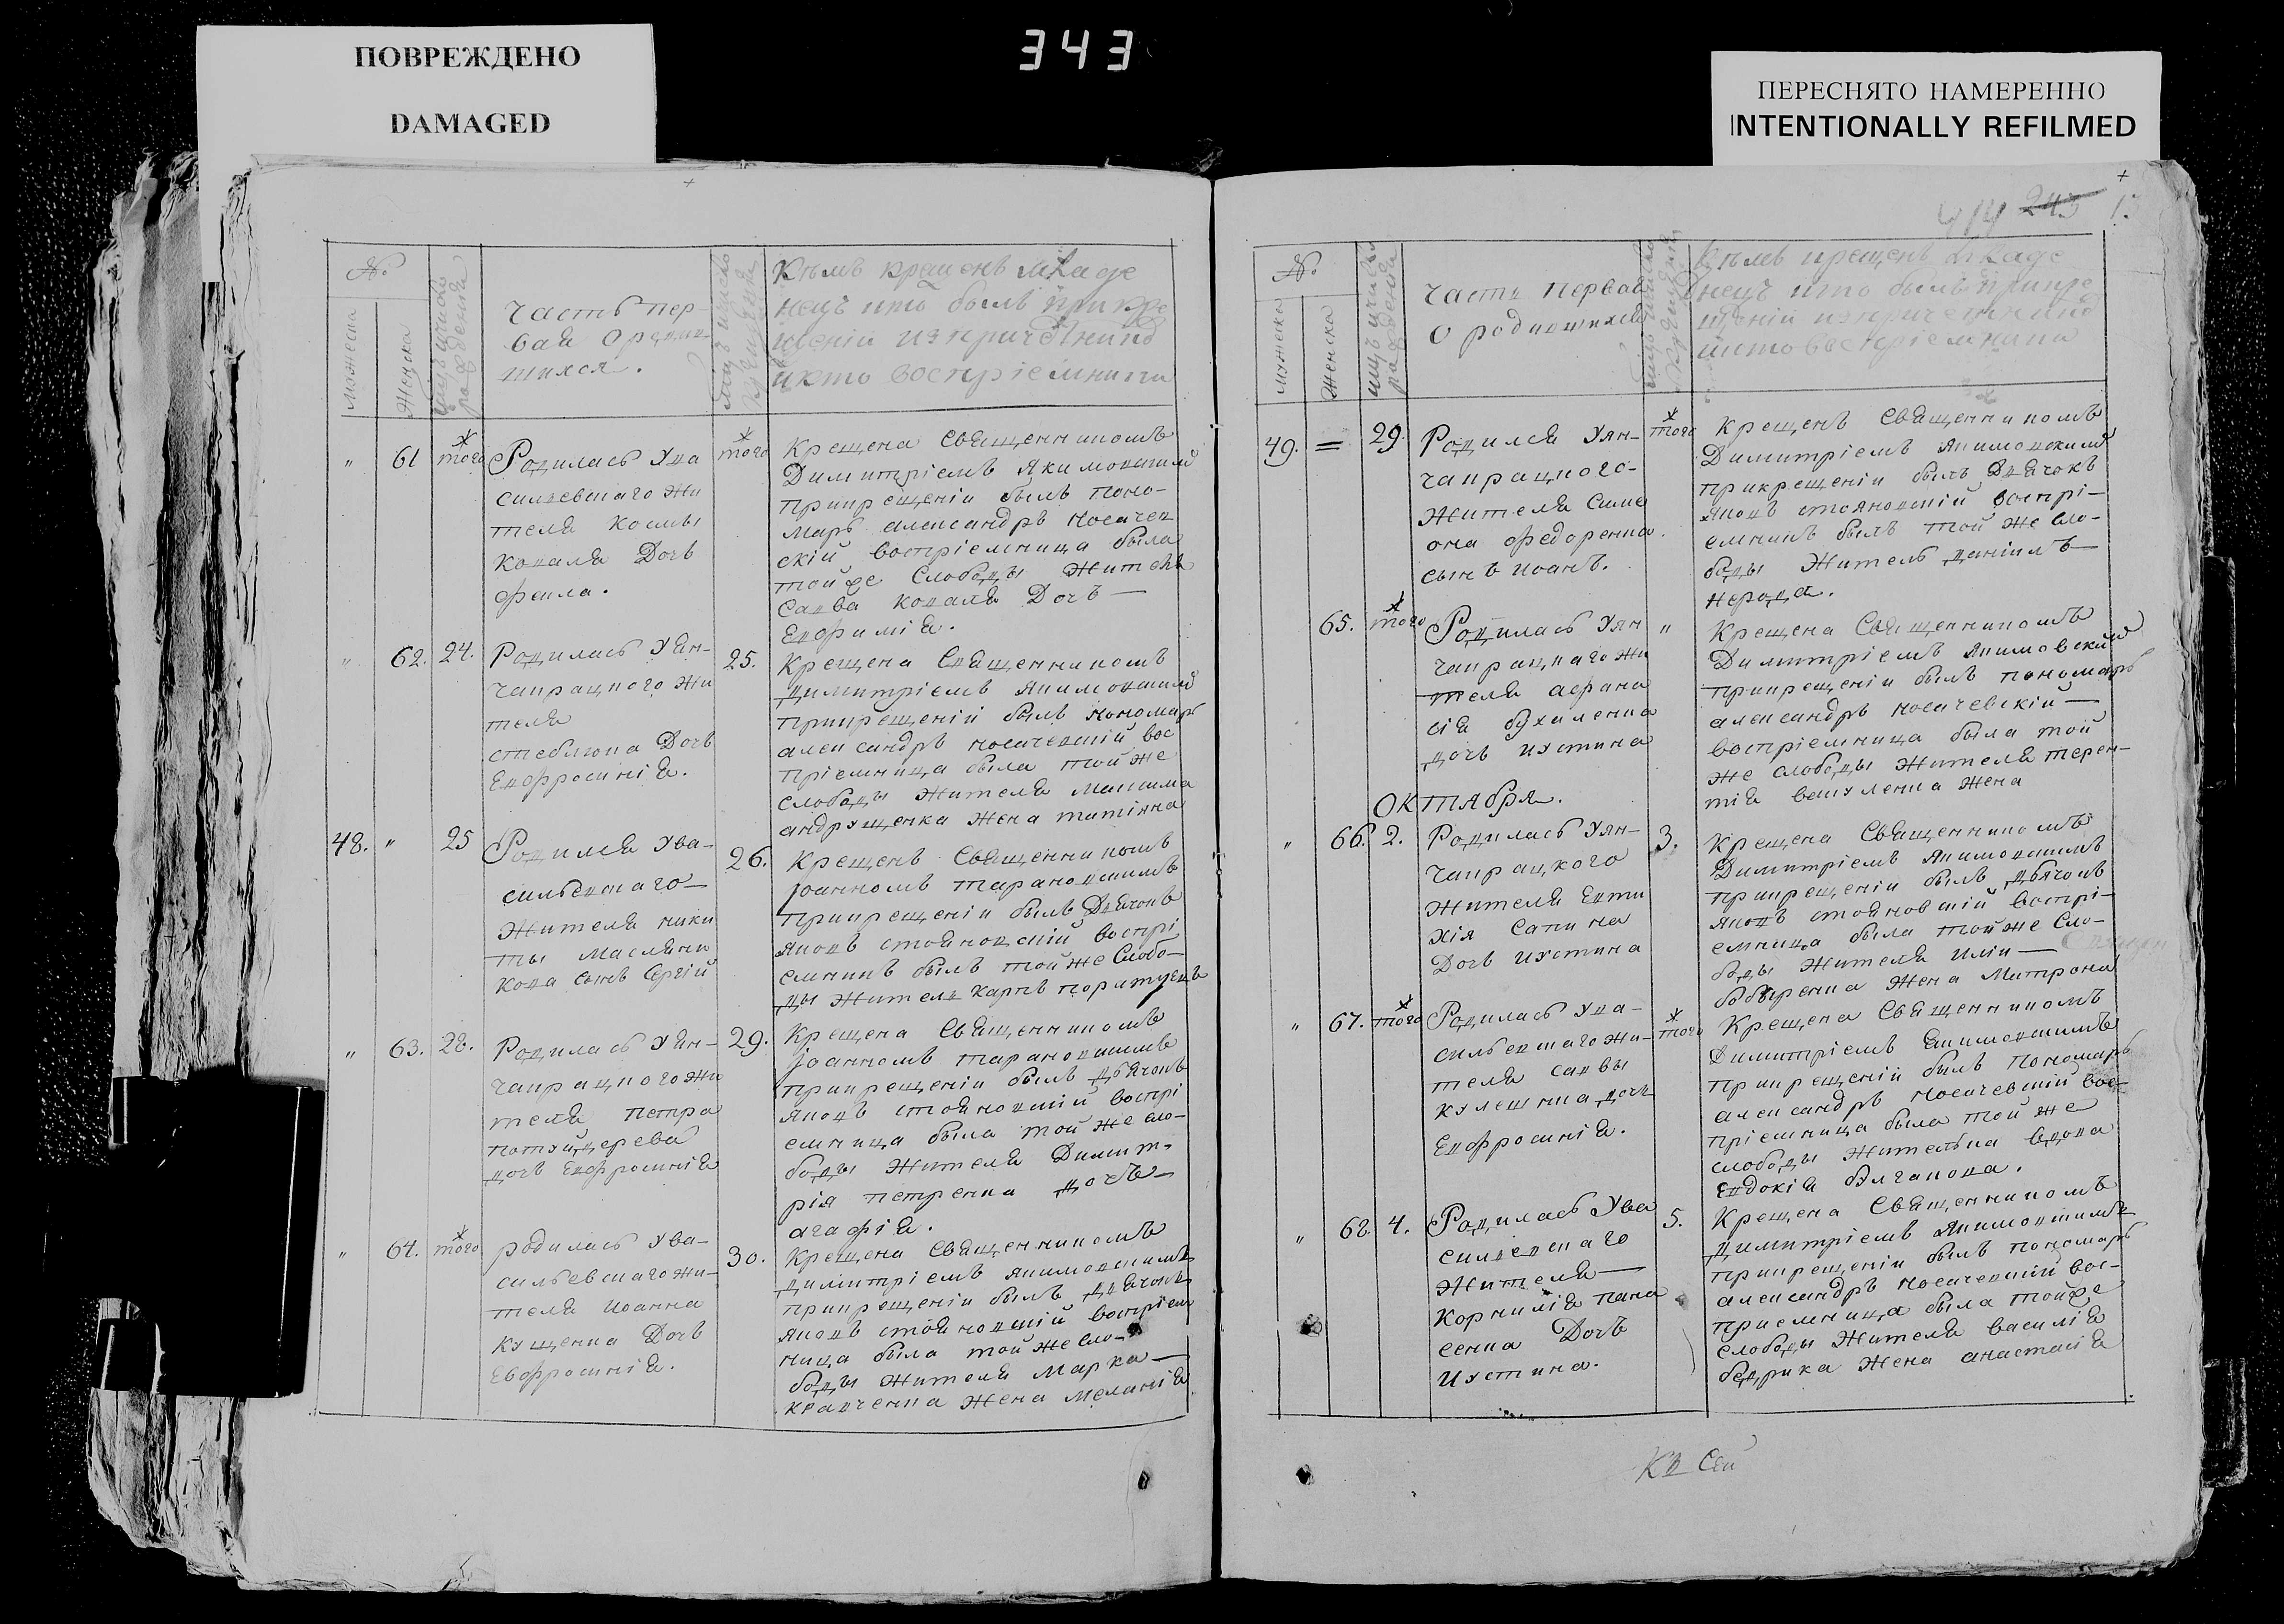 ПОВРЕЖДЕНО
DAMAGED
343
ПЕРЕСНЯТО НАМЕРЕННО
INTENTIONALLY REFILMED
№
мужеска
Женска
часть пер-
вая о родив-
шихся.
Кѣмъ крещенъ младе
нецъ кто былъ при кре
щеніи изъ причетниковъ
и кто воспріемники
" 61 того
Родилась у ва
сильевскаго жи
теля космы
коваля Дочь
фекла.
того
Крещена Священникомъ
Димитріемъ Якимовскимъ
прикрещеніи былъ поно-
марь александръ носачев
скій воспріемница была
тойже Слободы жителя
Савва коваля Дочь —
Евфимія.
" 62. 24.
Родилась у ян-
чакрацкого жи
теля
стеблюка Дочь
Евфросинія.
25.
Крещена Священникомъ
димитріемъ якимовскимъ
прикрещеній былъ пономарь
александръ носачевскій вос
пріемница была той же
слободы жителя максима
андрущенка жена татіяна
48. " 25
Родился у ва-
сильевскаго —
жителя ники
ты маслени
кова сынъ Сергій
26.
Крещенъ Священникомъ
Іоанномъ тарановскимъ
прикрещеніи былъ Дьячокъ
яковъ стояновскій воспрі
емникъ былъ той же слобо-
ды жителъ карпъ
" 63. 28.
Родилась у ян-
чакрацкого жи
теля петра
потуйдерева
дочь Евфросинія
29.
Крещена Священникомъ
Іоанномъ тарановскимъ
прикрещеніи былъ дьячокъ
яковъ стояновскій воспрі
емница была той же сло-
боды жителя Димит-
рія петренка дочь —
агафія.
" 64. того
родилась у ва-
сильевскаго жи-
теля иоанна
кущенка Дочь
Евфросинія.
30.
Крещена Священникомъ
димитріемъ якимовскимъ
прикрещеніи былъ дьячокъ
яковъ стояновскій воспріем
ница была той же сло-
боды жителя марка —
кравченка жена меланія
414 243
№
мужеска
Женска
часть первая
о родившихся
Кѣмъ крещенъ младе
нецъ кто былъ при кре
щеніи изъ причетниковъ
и кто воспріемники
49. = 29.
Родился у ян-
чакрацкого-
жителя симе
она федоренка.
сынъ иоанъ.
того
Крещенъ Священникомъ
Димитріемъ якимовскимъ
прикрещеніи былъ Дьячокъ
яковъ стояновскій воспрі-
емникъ былъ той же сло-
боды житель даніилъ —
нерода.
65. того
Родилась у ян
чакрацкаго жи
теля афана
сія бухиленка
дочь иустина
"
Крещена Священникомъ
Димитріемъ якимовскимъ
прикрещеніи былъ пономарь
александръ носачевскій —
воспріемница была той
же слободы жителя терен-
тія вакуленка жена
Октября.
" 66. 2.
Родилась у ян-
чакрацкого
жителя евти
хія сапика
Дочь иустина
3.
Крещена Священникомъ
Димитріемъ якимовскимъ
прикрещеніи былъ дьячокъ
яковъ стояновскій воспрі-
емница была той же сло-
боды жителя иліи —
бобыренка жена матрона
" 67. того
Родилась у ва-
сильевскаго жи-
теля саввы
кулешика дочь
Евфросинія.
того
Крещена Священникомъ
Димитріемъ якимовскимъ
прикрещеній былъ пономарь
александръ носачевскій вос-
пріемница была той же
слободы жителька вдова
Евдокія булгакова.
" 68 4.
Родилась у ва
сильевскаго
жителя —
корнилія пана
сенка Дочь
Иустина.
5.
Крещена Священникомъ
димитріемъ якимовскимъ
прикрещеніи былъ пономарь
александръ носачевскій вос-
приемница была тойже
слободы жителя василія
бедрика жена анастасія
Къ Сей